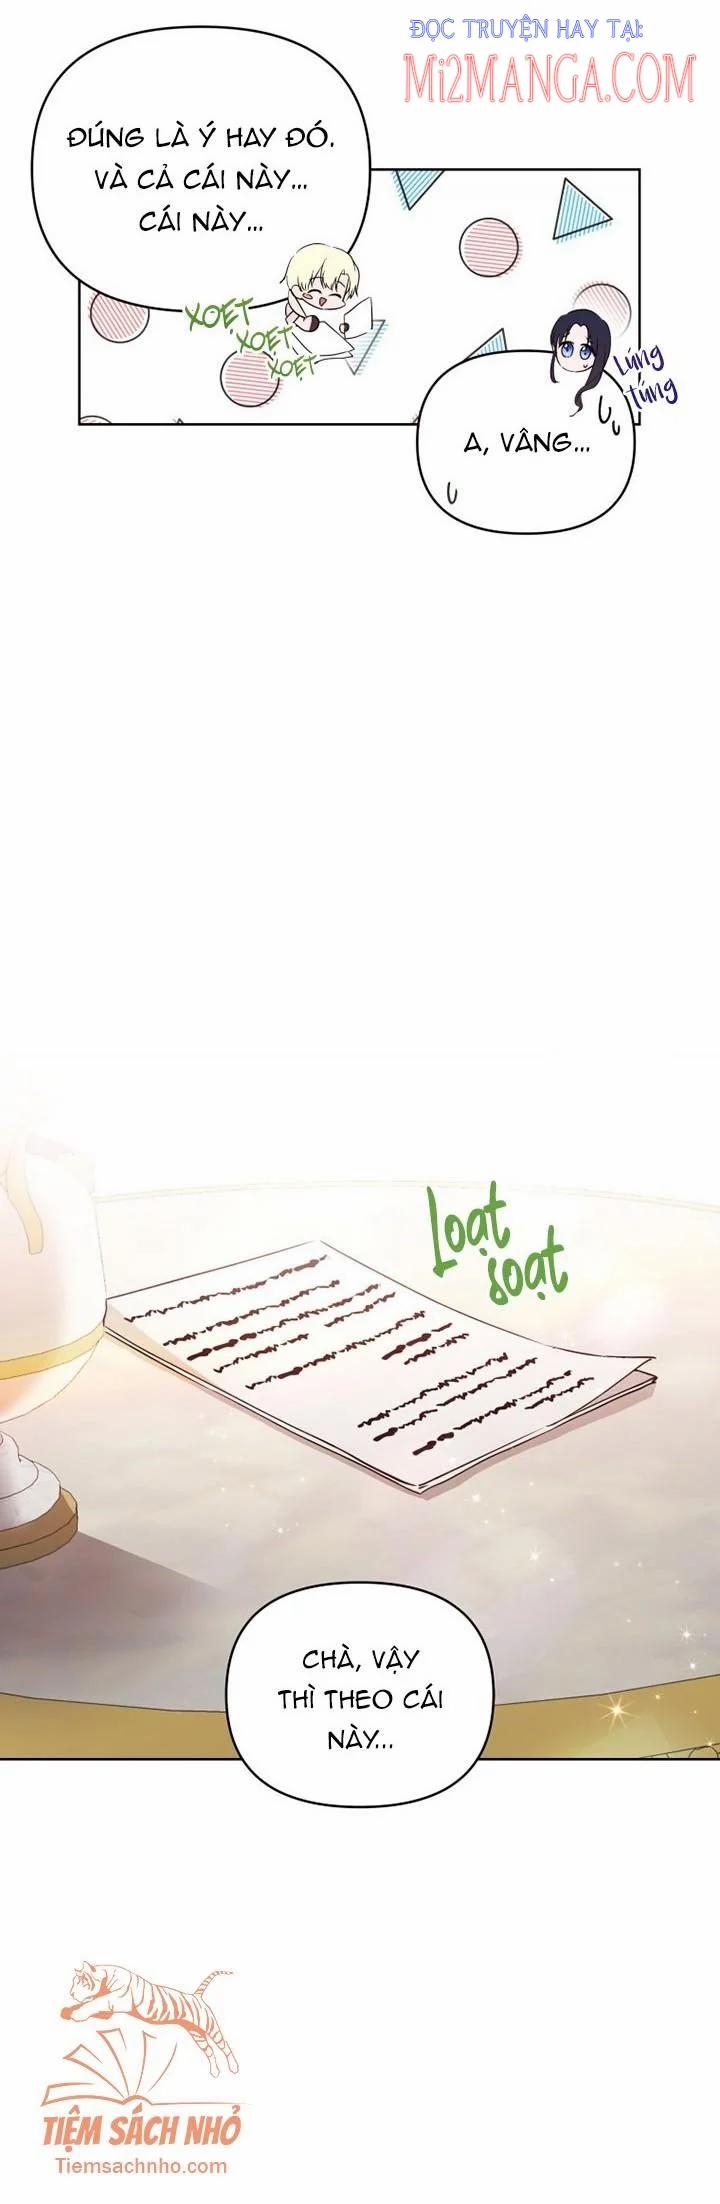 ĐỌC TRUYỆN HAY TẠI:
Mi2MANGA.COM
ĐÚNG LÀ Ý HAY ĐÓ.
VÀ CẢ CÁI NÀY...
CÁI NÀY...
XOẸT
XOẸT
XOẸT
Lúng
túng
A, VÂNG...
Loạt
soạt
CHÀ, VẬY
THÌ THEO CÁI
NÀY...
TIỆM SÁCH NHỎ
Tiemsachnho.com